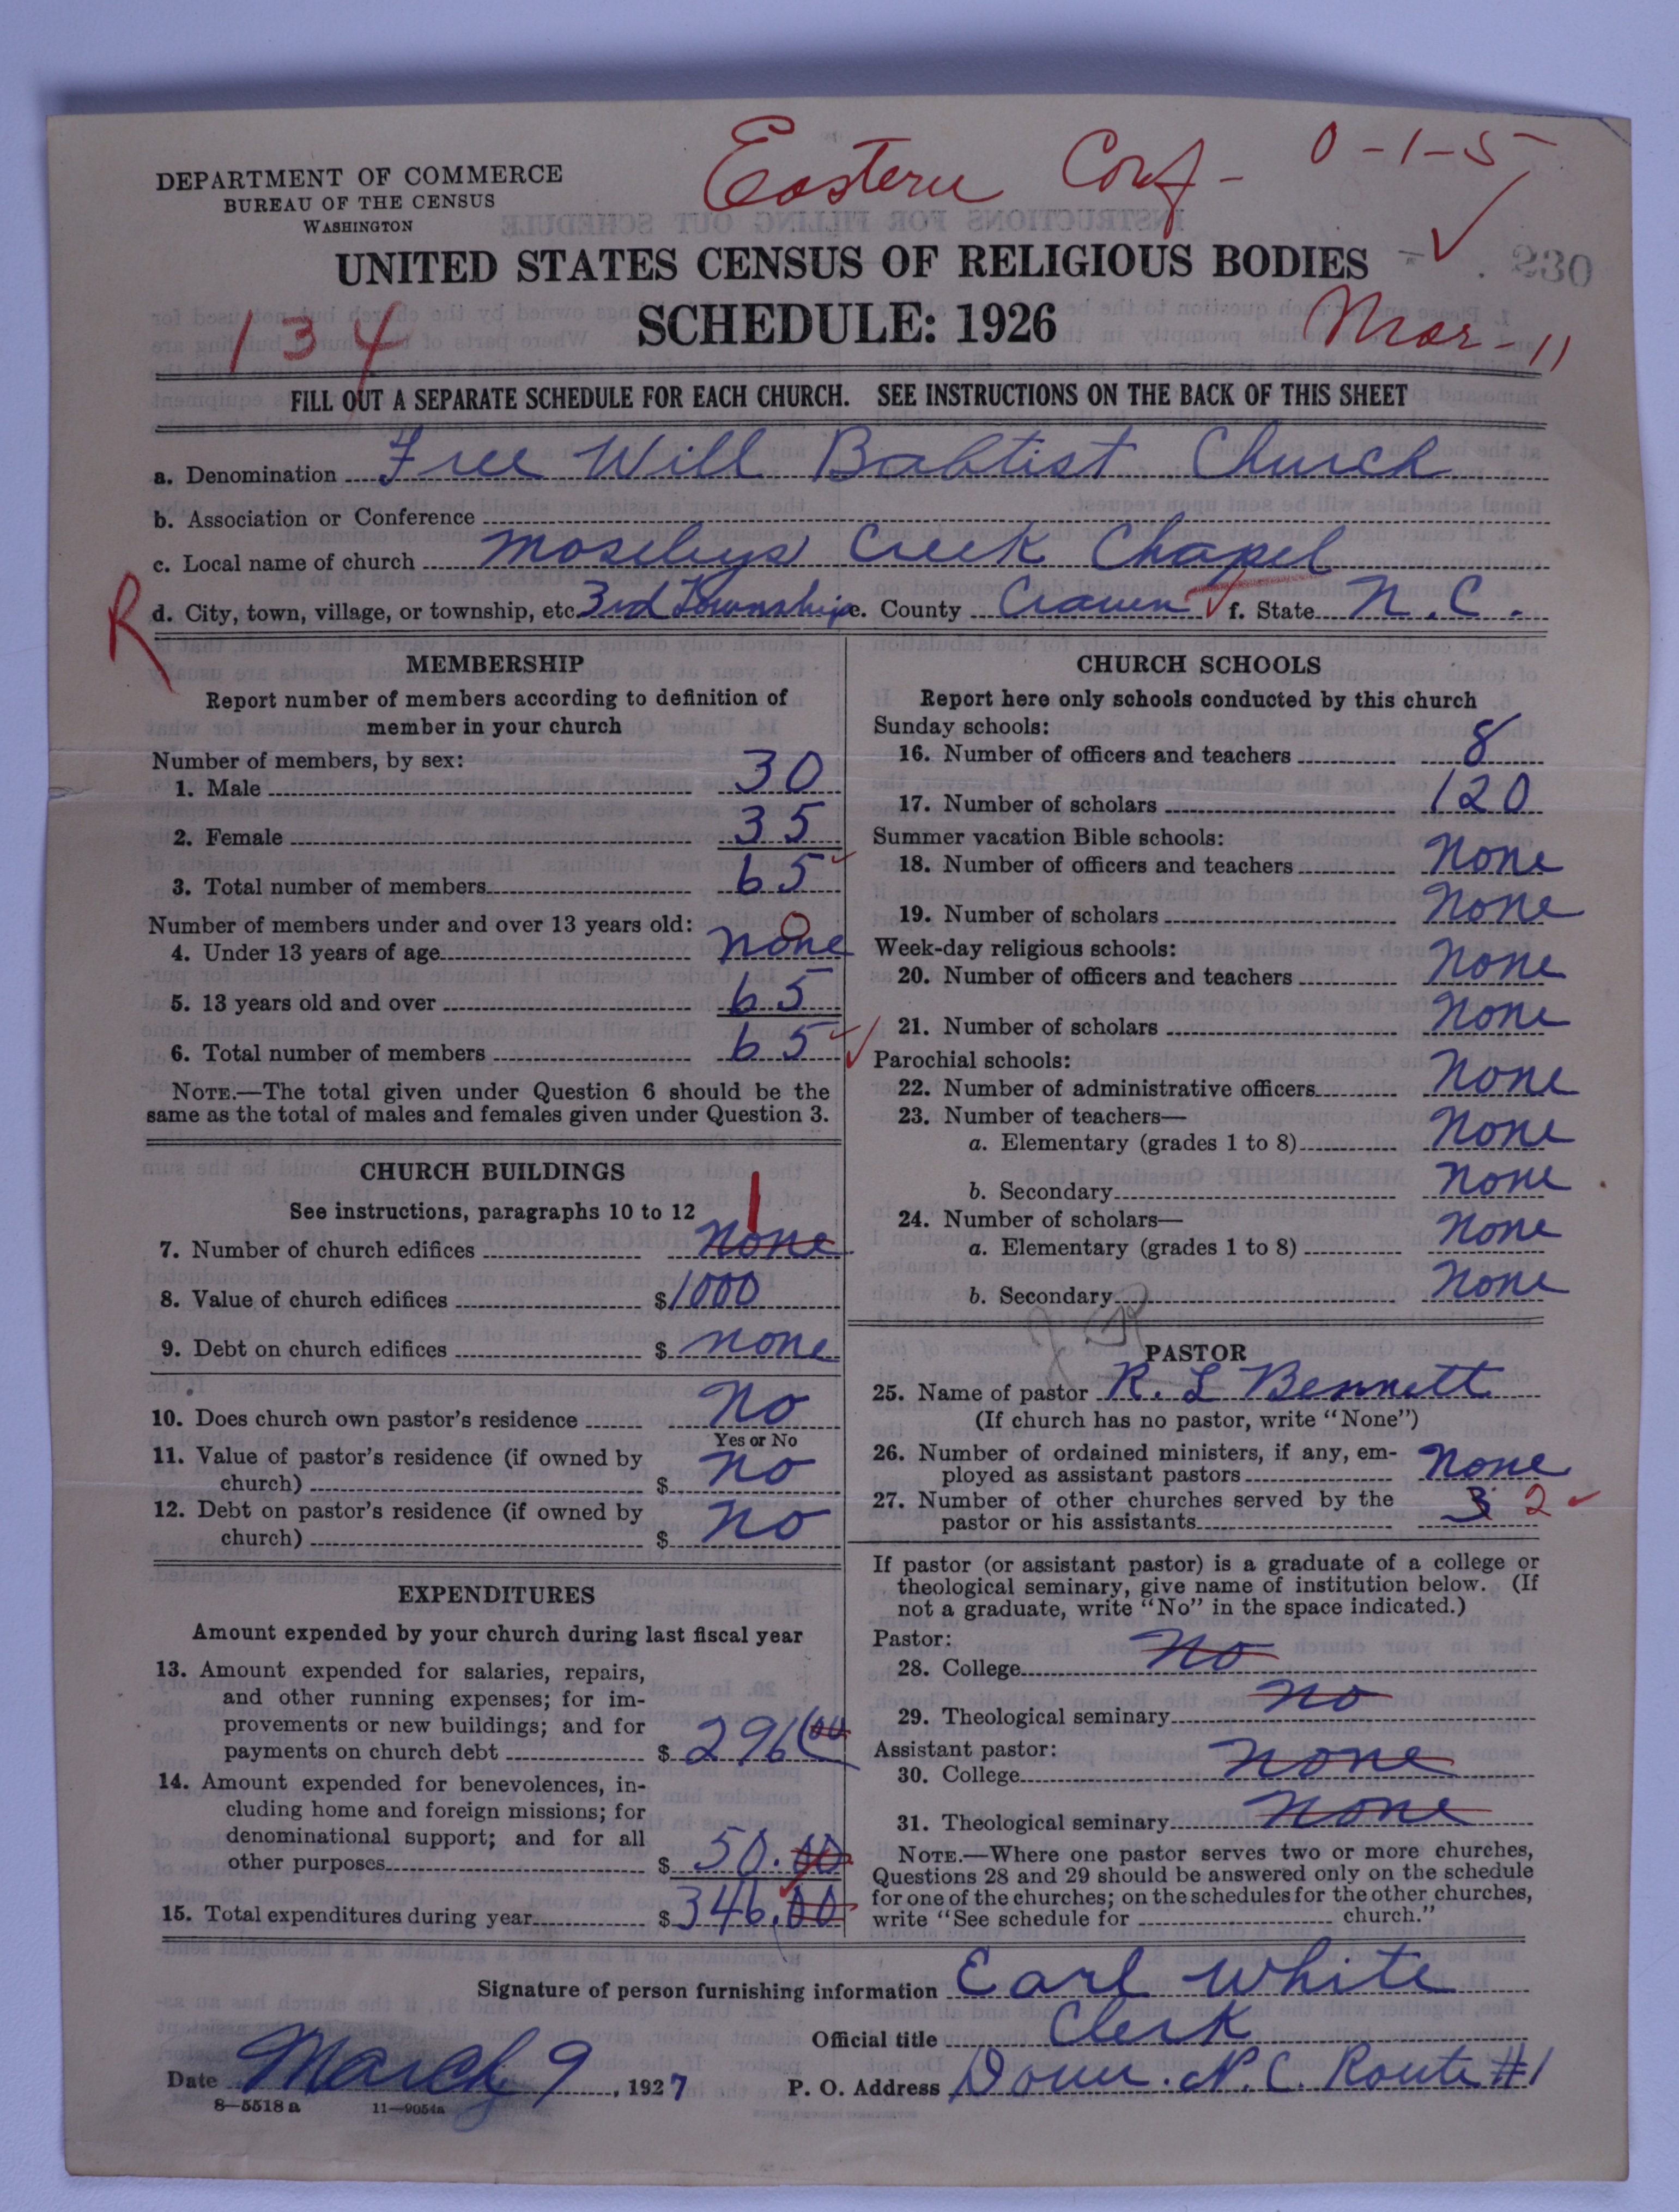 Eastern Conf- 0-1-5
DEPARTMENT OF COMMERCE
BUREAU OF THE CENSUS
WASHINGTON
UNITED STATES CENSUS OF RELIGIOUS BODIES
SCHEDULE: 1926
230
134
Mar-11
FILL OUT A SEPARATE SCHEDULE FOR EACH CHURCH. SEE INSTRUCTIONS ON THE BACK OF THIS SHEET
a. Denomination Free Will Babtist Church
b. Association or Conference
c. Local name of church Moseleys Creek Chapel
R
d. City, town, village, or township, etc. 3rd Township e. County Craven f. State N.C.
MEMBERSHIP
Report number of members according to definition of
member in your church
Number of members, by sex:
1. Male 30
2. Female 35
3. Total number of members 65
Number of members under and over 13 years old:
4. Under 13 years of age none 0
5. 13 years old and over 65
6. Total number of members 65
NOTE.—The total given under Question 6 should be the
same as the total of males and females given under Question 3.
CHURCH BUILDINGS
See instructions, paragraphs 10 to 12
7. Number of church edifices none 1
8. Value of church edifices $ 1000
9. Debt on church edifices $ none
10. Does church own pastor's residence No
Yes or No
11. Value of pastor's residence (if owned by
church) $ No
12. Debt on pastor's residence (if owned by
church) $ No
EXPENDITURES
Amount expended by your church during last fiscal year
13. Amount expended for salaries, repairs,
and other running expenses; for im-
provements or new buildings; and for
payments on church debt $ 296 00
14. Amount expended for benevolences, in-
cluding home and foreign missions; for
denominational support; and for all
other purposes $ 50.00
15. Total expenditures during year $ 346.00
CHURCH SCHOOLS
Report here only schools conducted by this church
Sunday schools:
16. Number of officers and teachers 8
17. Number of scholars 120
Summer vacation Bible schools:
18. Number of officers and teachers None
19. Number of scholars None
Week-day religious schools:
20. Number of officers and teachers None
21. Number of scholars None
Parochial schools:
22. Number of administrative officers None
23. Number of teachers—
a. Elementary (grades 1 to 8) None
b. Secondary None
24. Number of scholars—
a. Elementary (grades 1 to 8) None
b. Secondary None
PASTOR
25. Name of pastor R. L Bennett
(If church has no pastor, write "None")
26. Number of ordained ministers, if any, em-
ployed as assistant pastors None
27. Number of other churches served by the
pastor or his assistants 3 2
If pastor (or assistant pastor) is a graduate of a college or
theological seminary, give name of institution below. (If
not a graduate, write "No" in the space indicated.)
Pastor:
28. College No
29. Theological seminary No
Assistant pastor:
30. College None
31. Theological seminary None
NOTE.—Where one pastor serves two or more churches,
Questions 28 and 29 should be answered only on the schedule
for one of the churches; on the schedules for the other churches,
write "See schedule for church."
Signature of person furnishing information Earl White
Official title Clerk
Date March 9, 1927 P. O. Address Dover. N.C. Route #1
8—5518 a 11—9054a